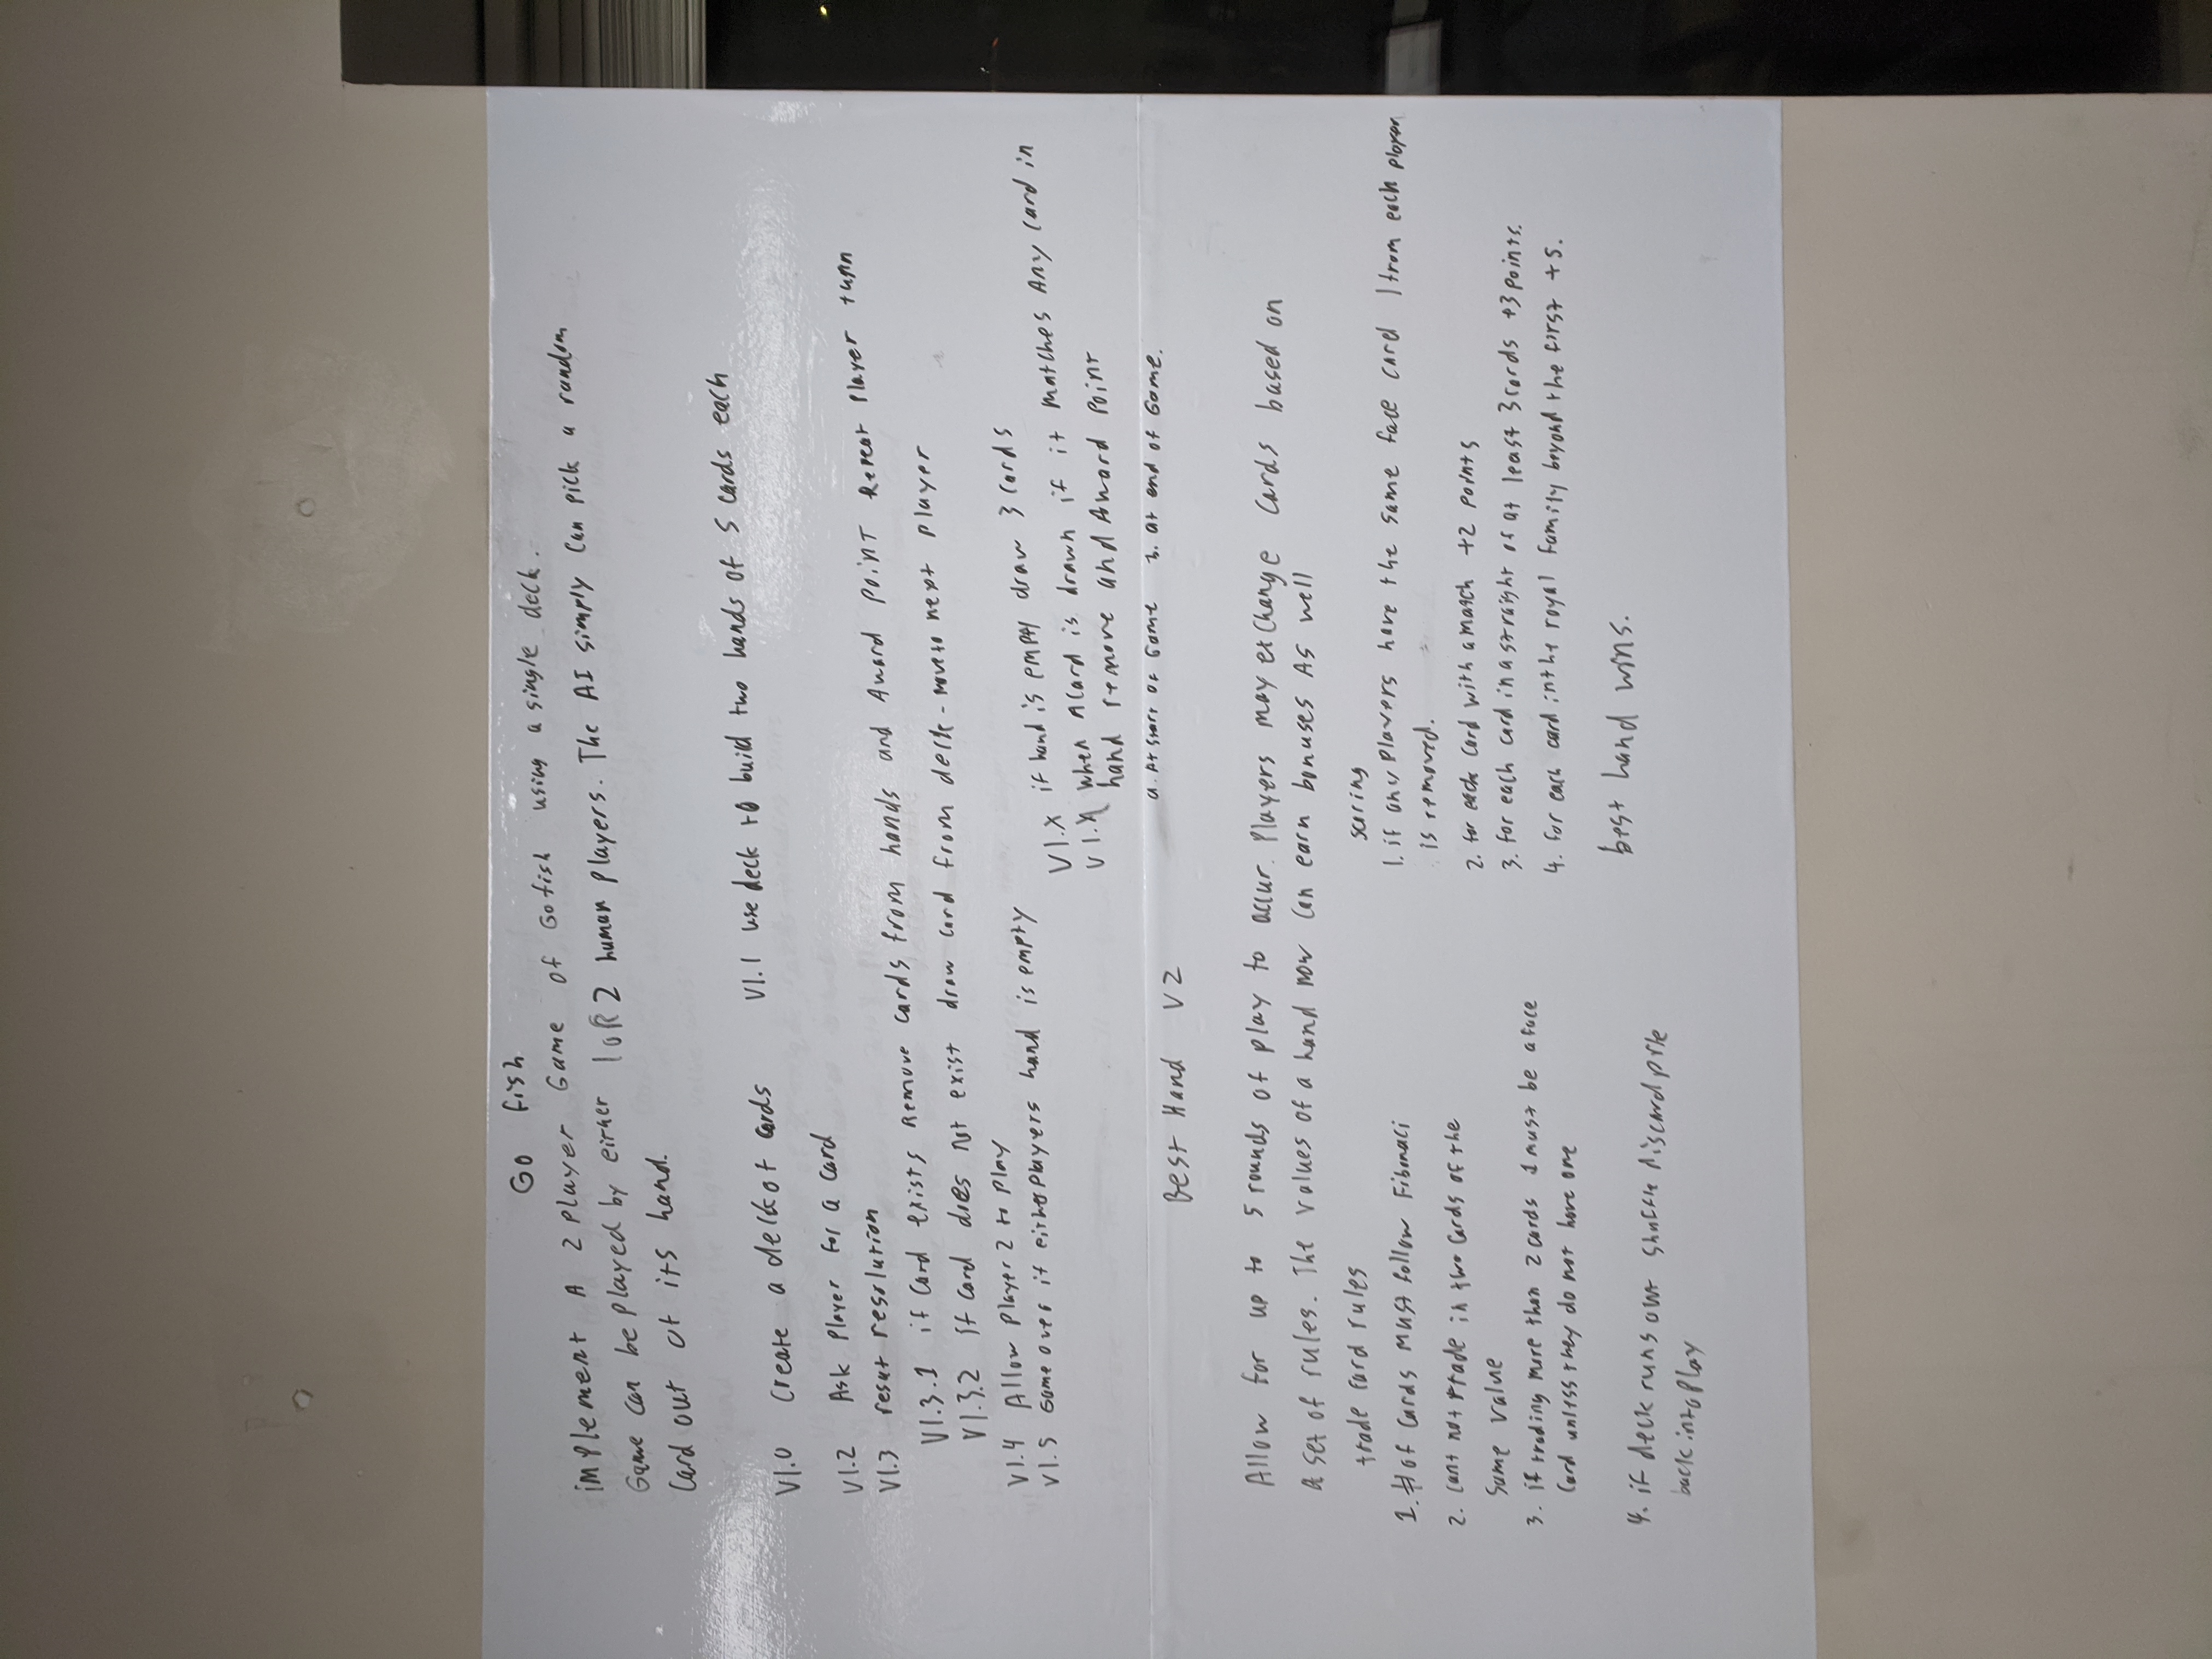 Go fish
implement A 2 player Game of Gofish using a single deck.
Game can be played by either 1 oR 2 human players. The AI simply can pick a random
Card out of its hand.
V1.0 Create a deck of cards
V1.1 use deck to build two hands of 5 cards each
V1.2 Ask Player for a card
V1.3 resolution
V1.3.1 if Card exists Remove cards from hands and Award Point Repeat Player turn
V1.3.2 If card does not exist draw card from deck - move to next player
V1.4 Allow Player 2 to Play
V1.5 Game over if either players hand is empty
V1.X if hand is empty draw 3 cards
V1.X when A Card is drawn if it matches Any card in
hand remove and Award Point
a. At Start of Game b. at end of Game.
Best Hand V2
Allow for up to 5 rounds of play to occur. Players may exchange cards based on
a set of rules. The values of a hand now can earn bonuses As well
trade card rules
1. # of Cards Must follow Fibonaci
2. cant not trade in two cards of the
Same value
3. if trading more than 2 cards 1 must be a face
Card unless they do not have one
4. if deck runs out shuffle discard pile
back into Play
scoring
1. if any Players have the same face card 1 from each player
is removed.
2. for each card with a match +2 points
3. for each card in a straight of at least 3 cards +3 points.
4. for each card in the royal family beyond the first +5.
best hand wins.